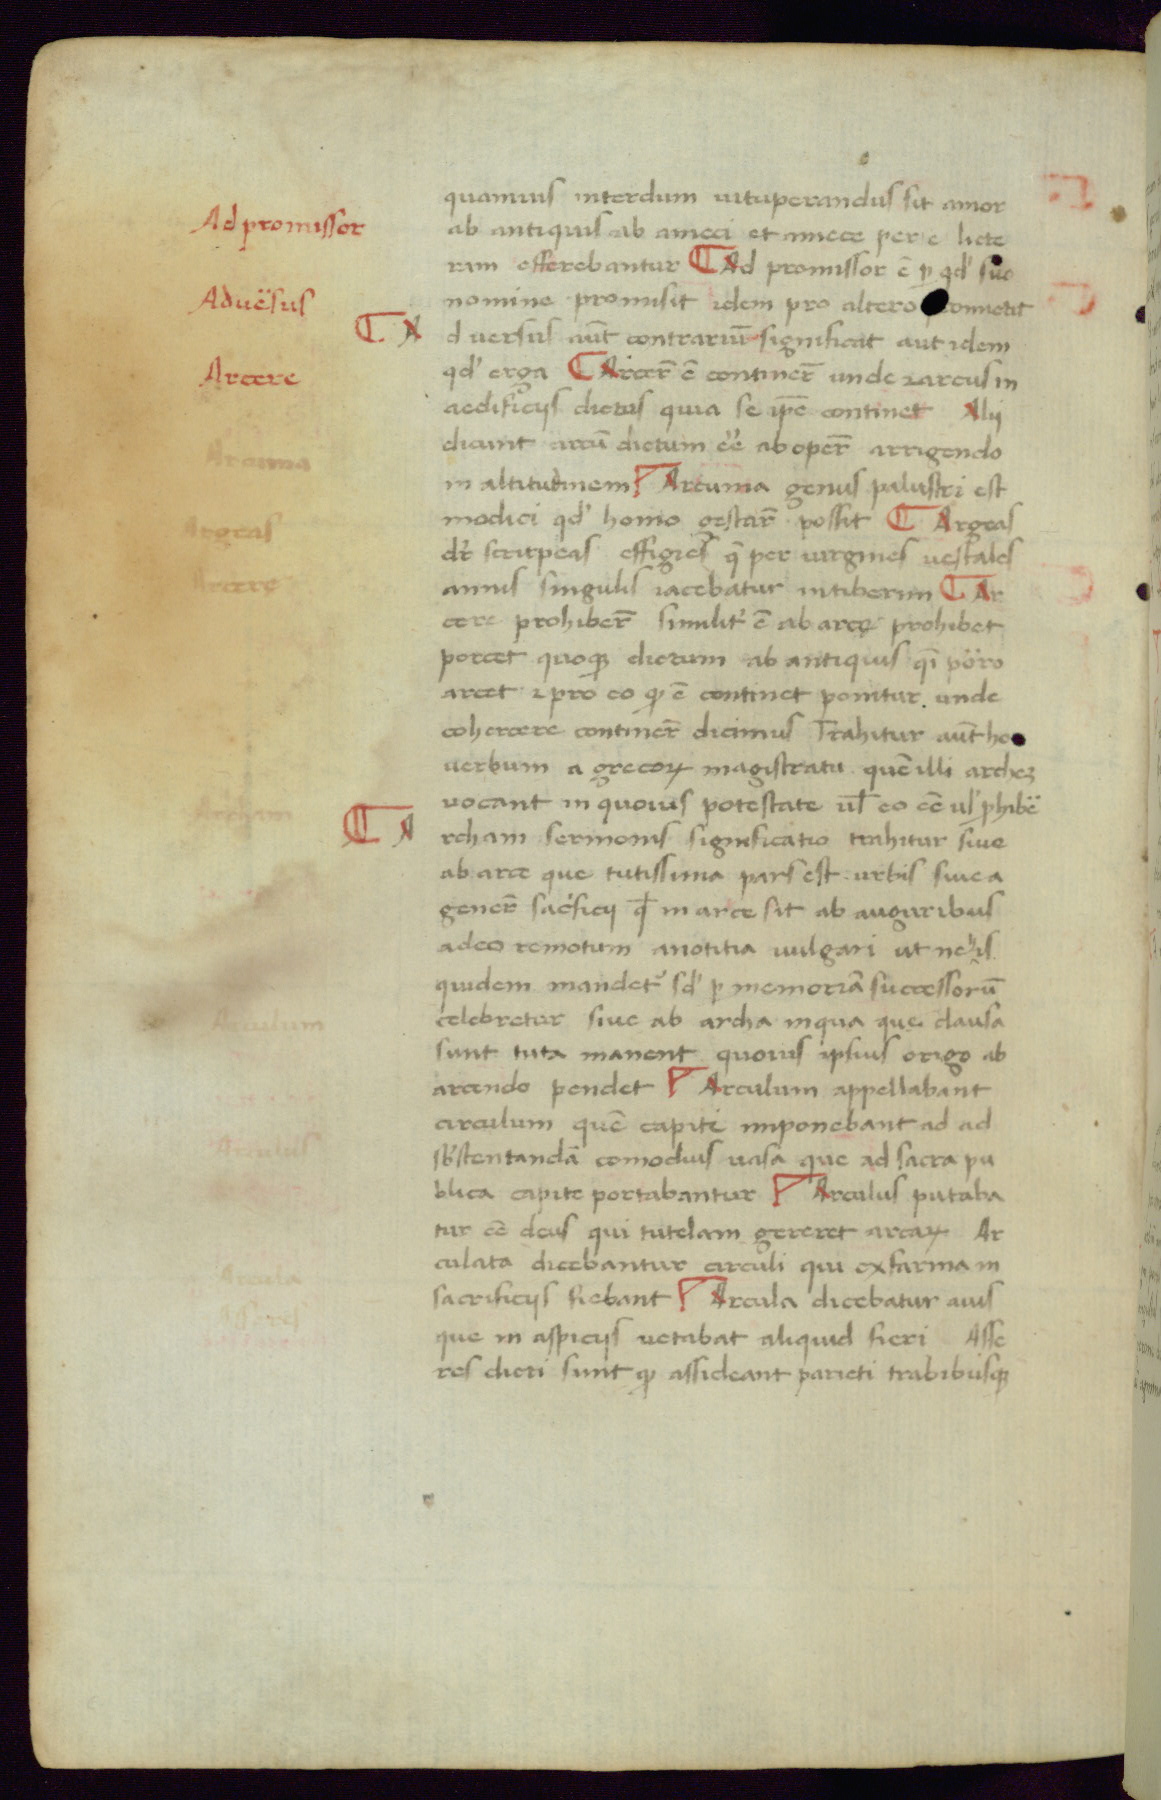 Ad promissor
Aduësus
Arcere
Arcuma
Argeas
Arcere
Archam
Arculum
Arculus
Arcula
Asseres
quamuis interdum uituperandus sit amor
ab antiquis ab ameci et amece per e licte
ram efferebantur Ad promissor ē ꝓ qd' suo
nomine promisit idem pro altero promictit
A d versus aūt contrariū significat aut idem
qd' erga Arcer̄ ē continer̄ unde ⁊ arcus in
aedificijs dictus quia se ip̄e continet Alij
dicunt arcū dictum eē ab oper̄ arrigendo
in altitudinem Arcuma genus palustri est
modici qd' homo gestar̄ possit Argeas
dr̄ scirpeas effigies q̄ per uirgines uestales
annis singulis iacebatur intiberim Ar
cere prohiber̄ similit' ē ab arce prohibet
porcet quoqꝫ dictum ab antiquis qī porro
arcet ⁊ pro eo qꝫ ē continet ponitur unde
cohercere continer̄ dicimus Trahitur aūt hoc
uerbum a grecoꝝ magistratu quē illi archeꝫ
uocant in quoius potestate ul̄ eo eē ul' phibē
A rcham sermonis significatio trahitur siue
ab arce que tutissima pars est urbis siue a
gener̄ sac'ficij q̄ in arce sit ab auguribus
adeo remotum anotitia uulgari ut ne lr̄is
quidem mandet' sd' ꝑ memoriā successorū
celebretur siue ab archa inqua que clausa
sunt tuta manent quoius ipsius origo ab
arcendo pendet Arculum appellabant
circulum quē capiti imponebant ad ad
sb'stentandā comodius uasa que ad sacra pu
blica capite portabantur Arculus putaba
tur eē deus qui tutelam gereret arcaꝝ Ar
culata dicebantur circuli qui ex farina in
sacrificijs fiebant Arcula dicebatur auis
que in aspicijs uetabat aliquid fieri Asse
res dicti sunt qꝫ assideant parieti trabibusqꝫ